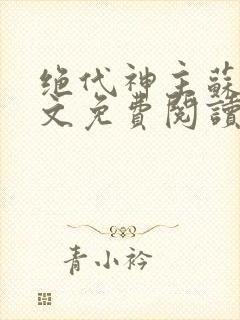 绝代神主蘇
文免費閱讀
青小衿